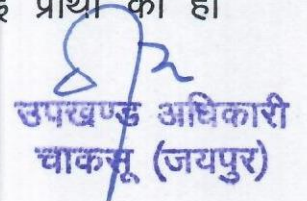 प्रार्थी की हो
उपखण्ड अधिकारी
चाकसू (जयपुर)